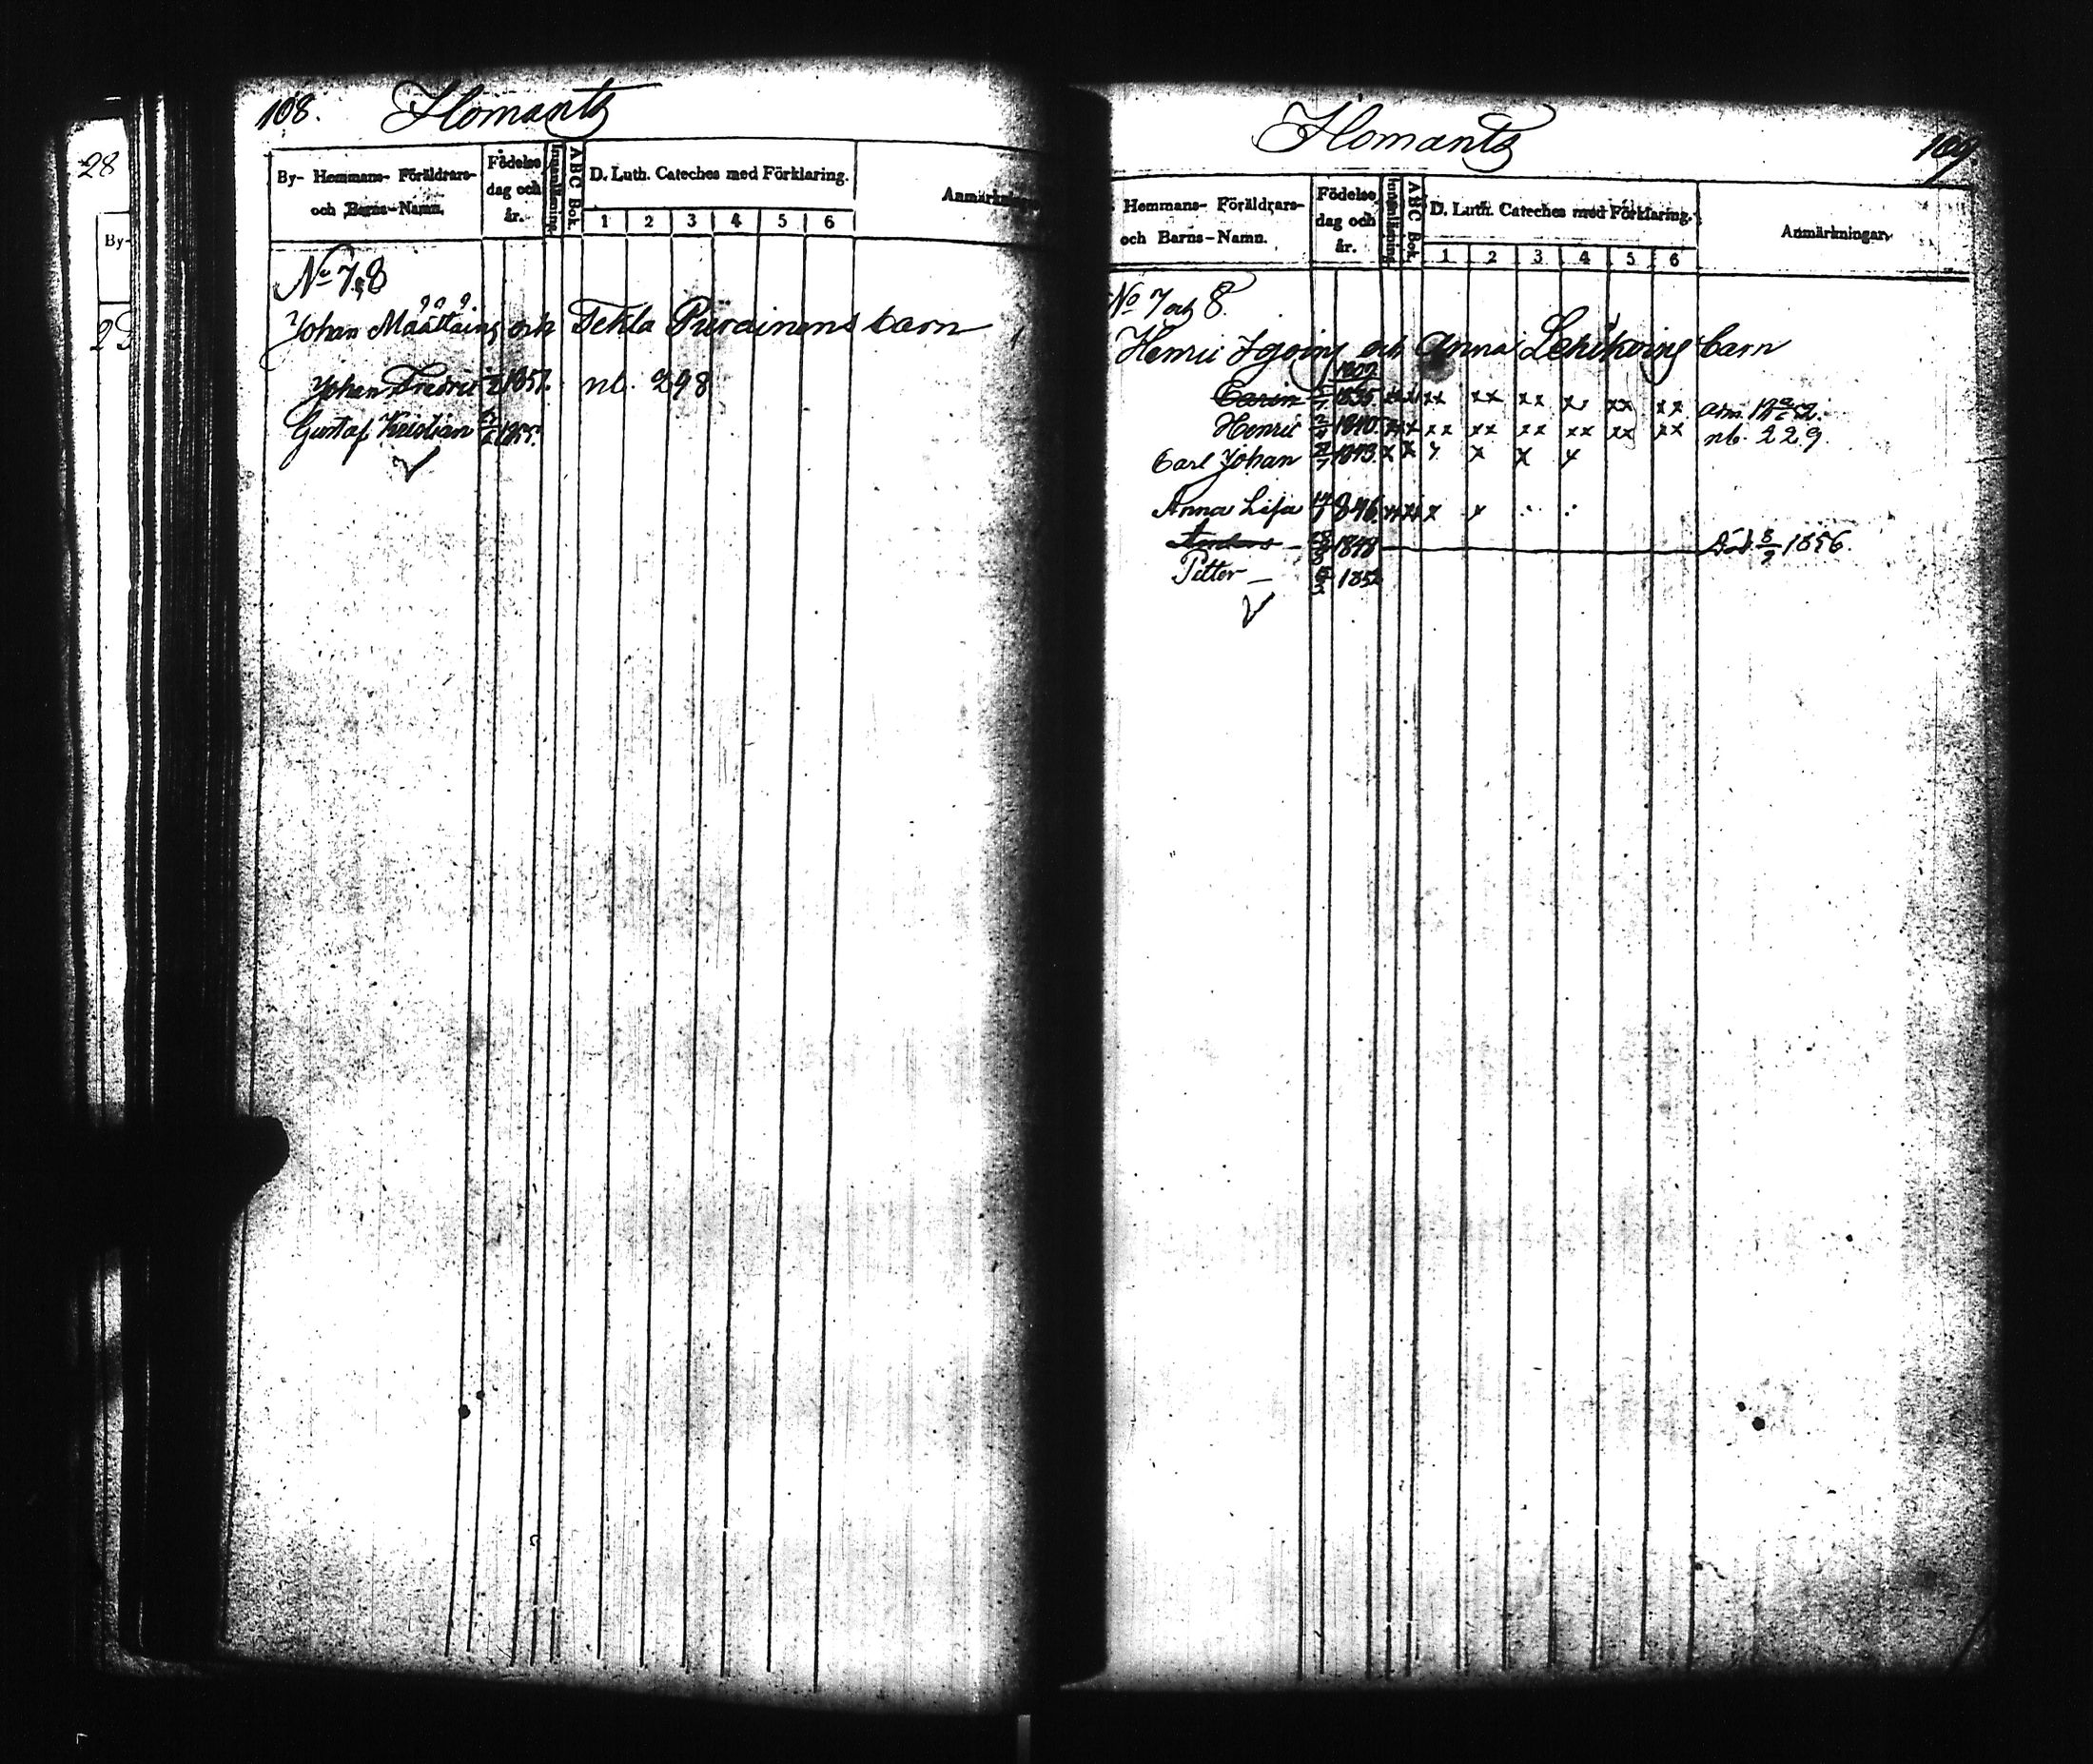 28
By-
108. Ilomants
By- Hemmans- Föräldrars- och Barns-Namn.
Födelse dag och år.
Innanläsning.
ABC Bok.
D. Luth. Cateches med Förklaring.
1 2 3 4 5 6
No 7, 8
Johan Määttäins och Tekla Purainens barn
Johan Fredric 1857. nb. 298
Gustaf
Ilomants 109.
Hemmans- Föräldrars- och Barns-Namn.
Födelse dag och år.
Innanläsning.
ABC Bok.
D. Luth. Cateches med Förklaring.
1 2 3 4 5 6
Anmärkningar.
No 7 och 8.
Henric och Anna barn
Carin 1835. xx xx xx xx xx xx xx xx
Henric 1840. xx xx xx xx xx xx xx xx nb. 229.
Carl Johan 1843. x x x x x x
Anna Lisa 1846. xx xx x x
Anders 1848 Död 8/2 1856.
Petter 1852